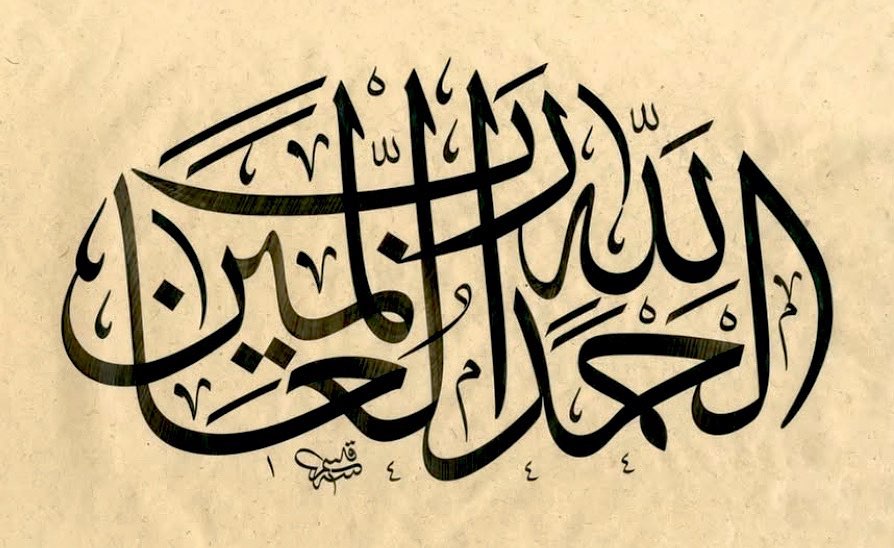 الْحَمْدُ لِلّٰهِ رَبِّ الْعَالَمِينَ
١٤٤٤